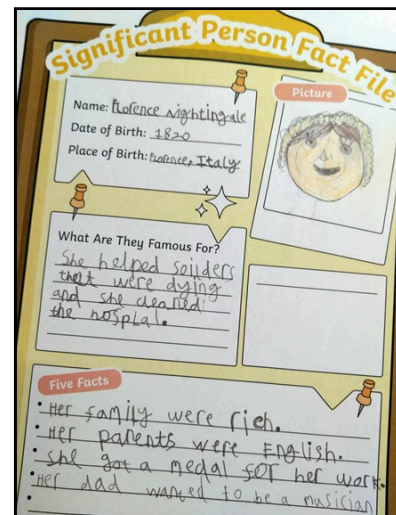 Significant Person Fact File
Name: Florence Nightingale
Date of Birth: 1820
Place of Birth: Florence, Italy
Picture
What Are They Famous For?
She helped soilders
thet were dying
and she cleaned
the hosptal.
Five Facts
• Her family were rich.
• Her parents were English.
• She got a medal for her work.
• Her dad wanted to be a musician
•